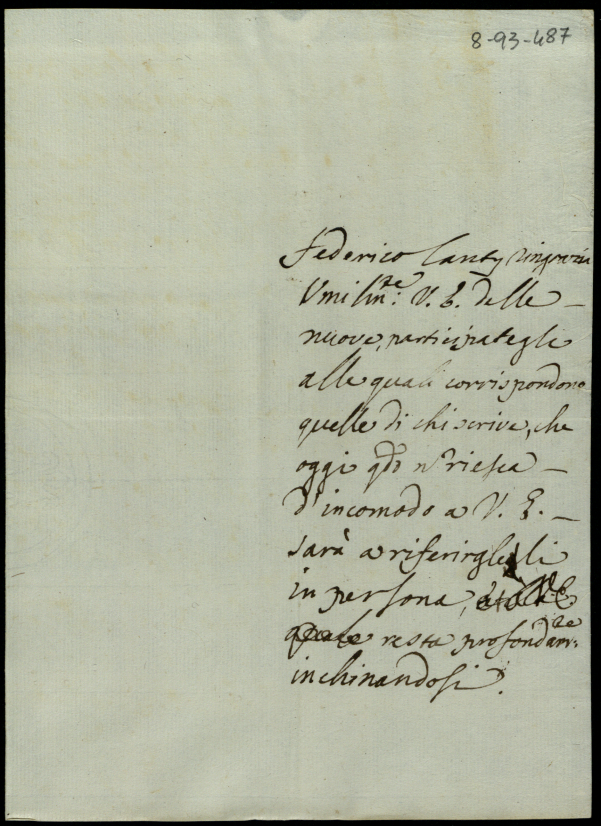 8-93-487
Federico Canty ringrazia
Umilm.te V. E. delle
nuove, participategli
alle quali corrispondono
quelle di chi scrive, che
oggi qdo n riesca
d'incomodo a V. E.
sarà a riferirgleli
in persona,
resta profondam.te
inchinandosi.